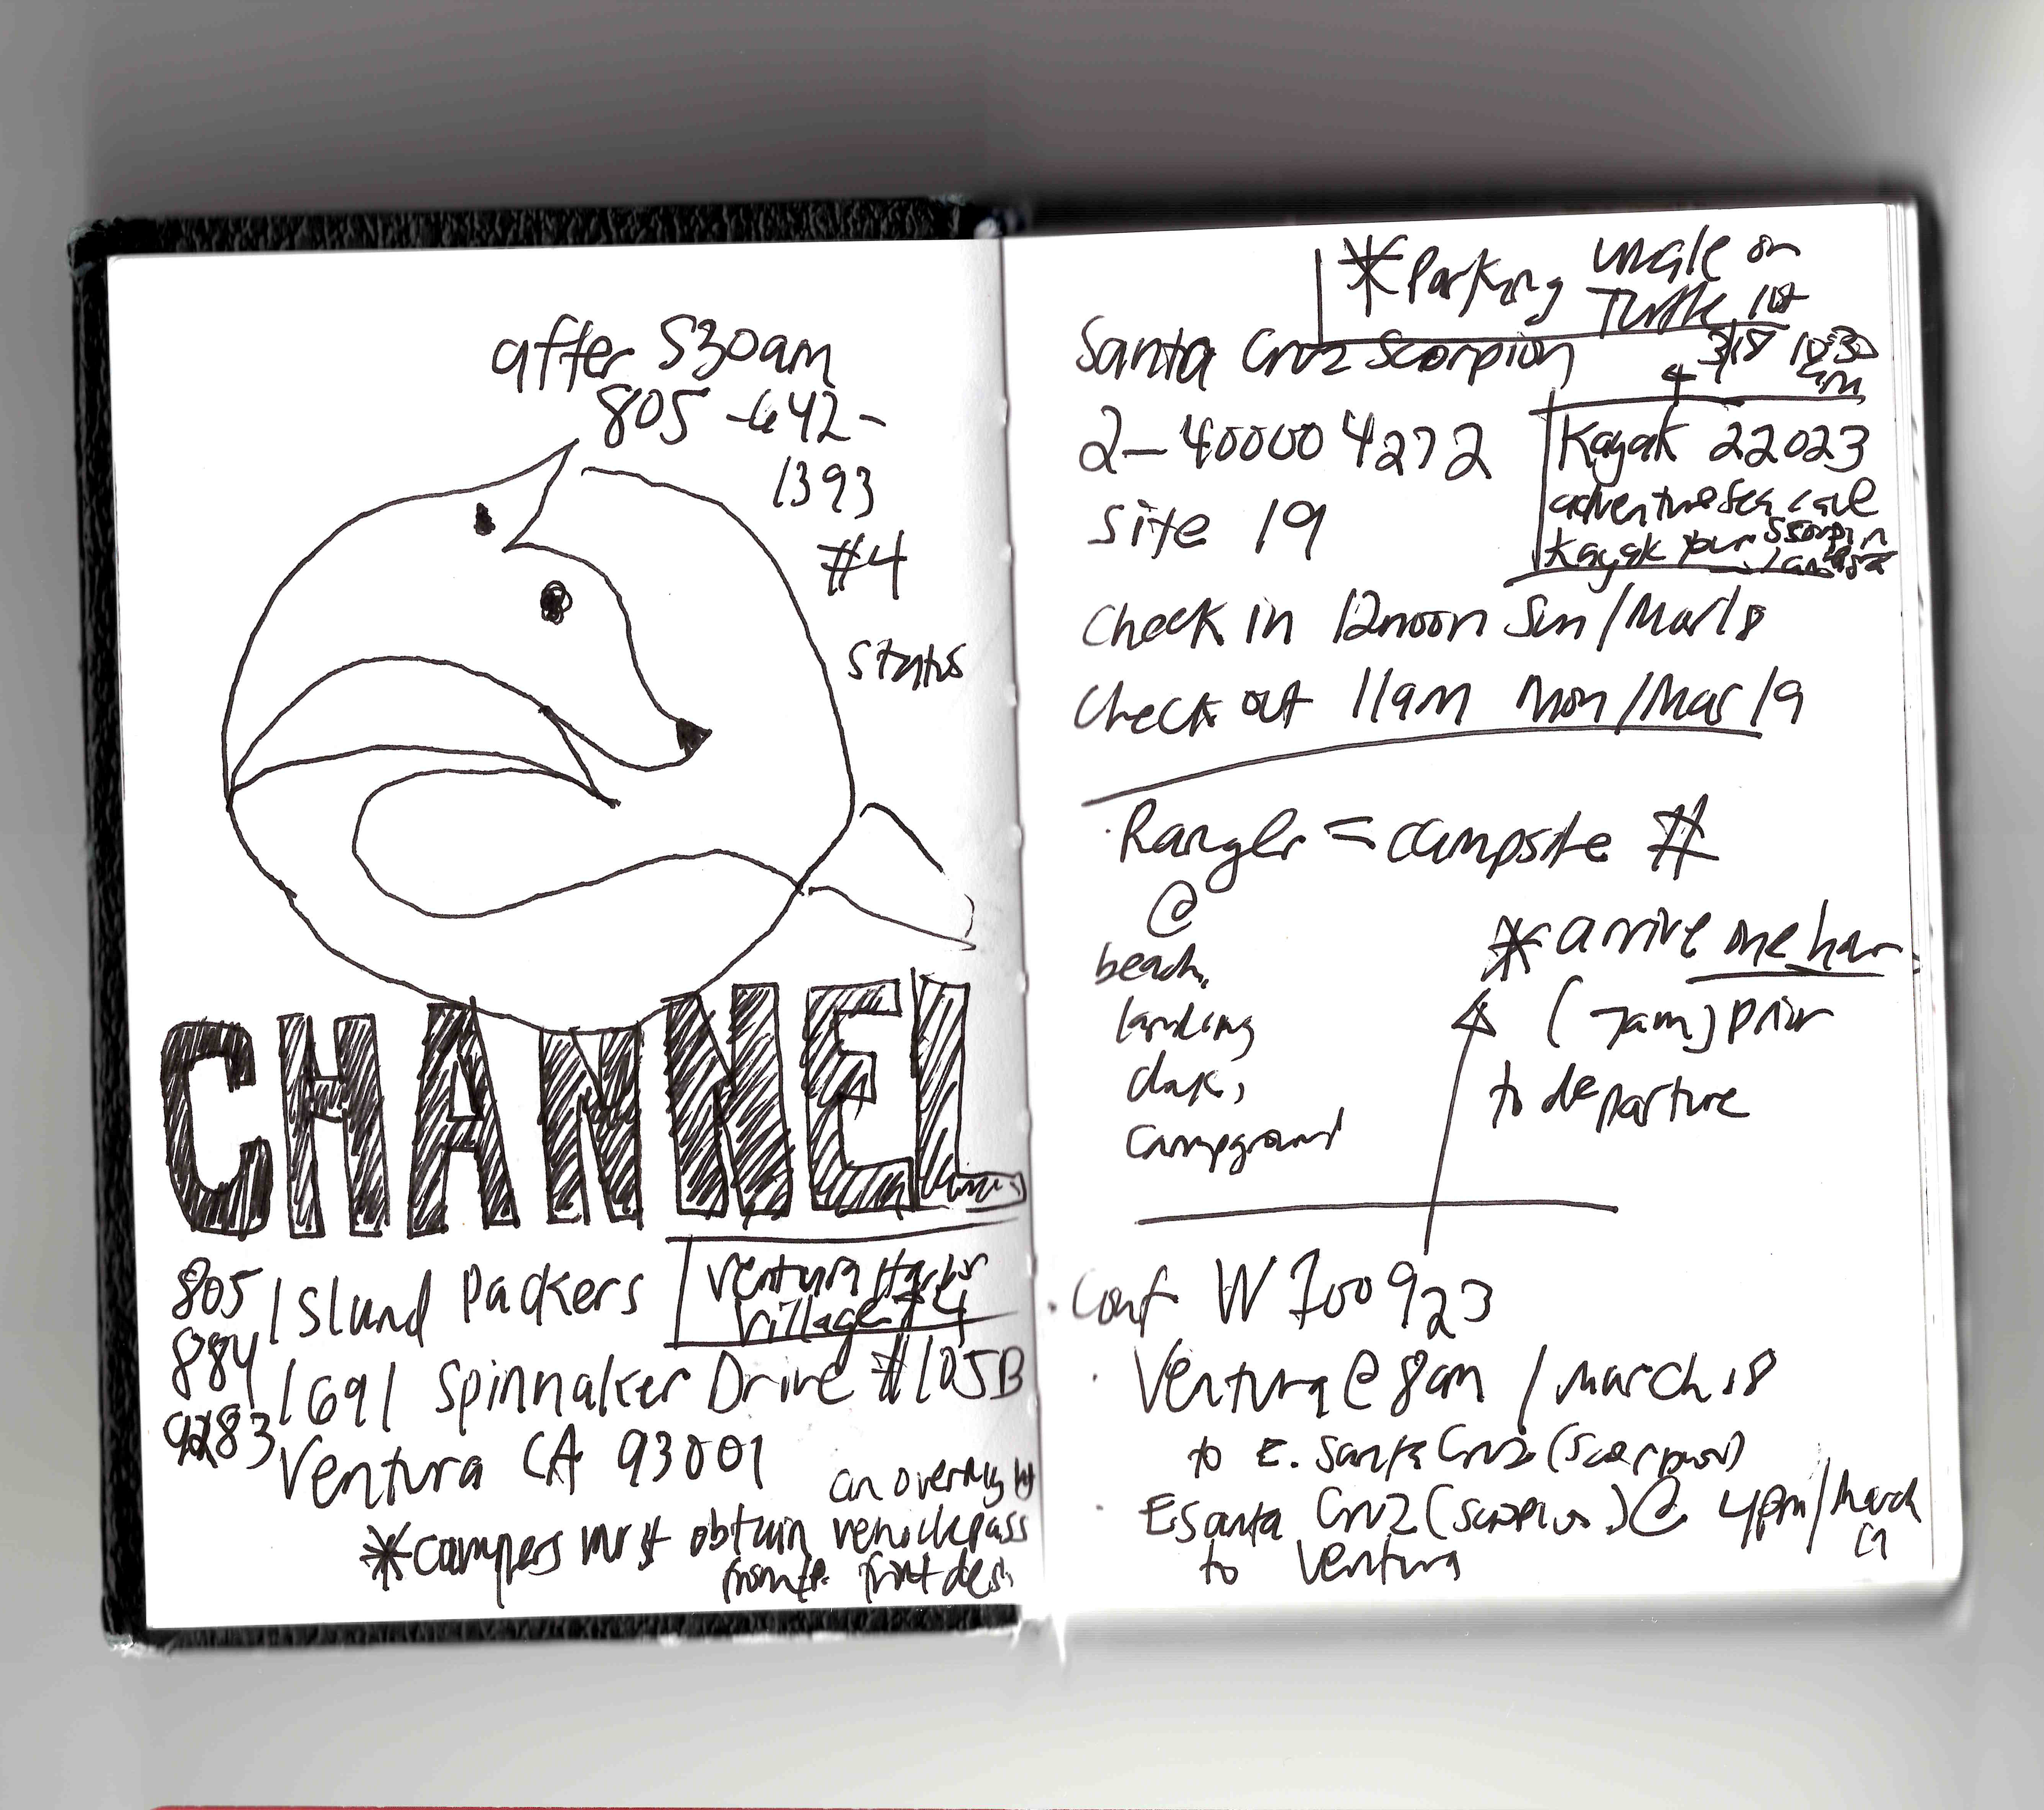 after 530am
805-642-
1393
#4
status
CHANNEL
805
884
9283
Island Packers
Ventura Harbor
Village #4
1691 Spinnaker Drive #105B
Ventura CA 93001
an overnight
*campers must obtain vehicle pass
from the front desk
*Parking
on
Turtle lot
Santa Cruz Scorpion
3/18 10:30
am
2-400004272
Kayak 22023
adventure Sea cave
Kayak tour Scorpion
site 19
Check in 12noon Sun/Mar 18
Check out 11am Mon/Mar 19
·Ranger = campsite #
@
beach,
landing
dock,
campground
*arrive one hour
(7am) prior
to departure
·Conf W700923
· Ventura @ 8am / March 18
to E. Santa Cruz (Scorpion)
· E Santa Cruz (Scorpion) @ 4pm/March
19
to Ventura